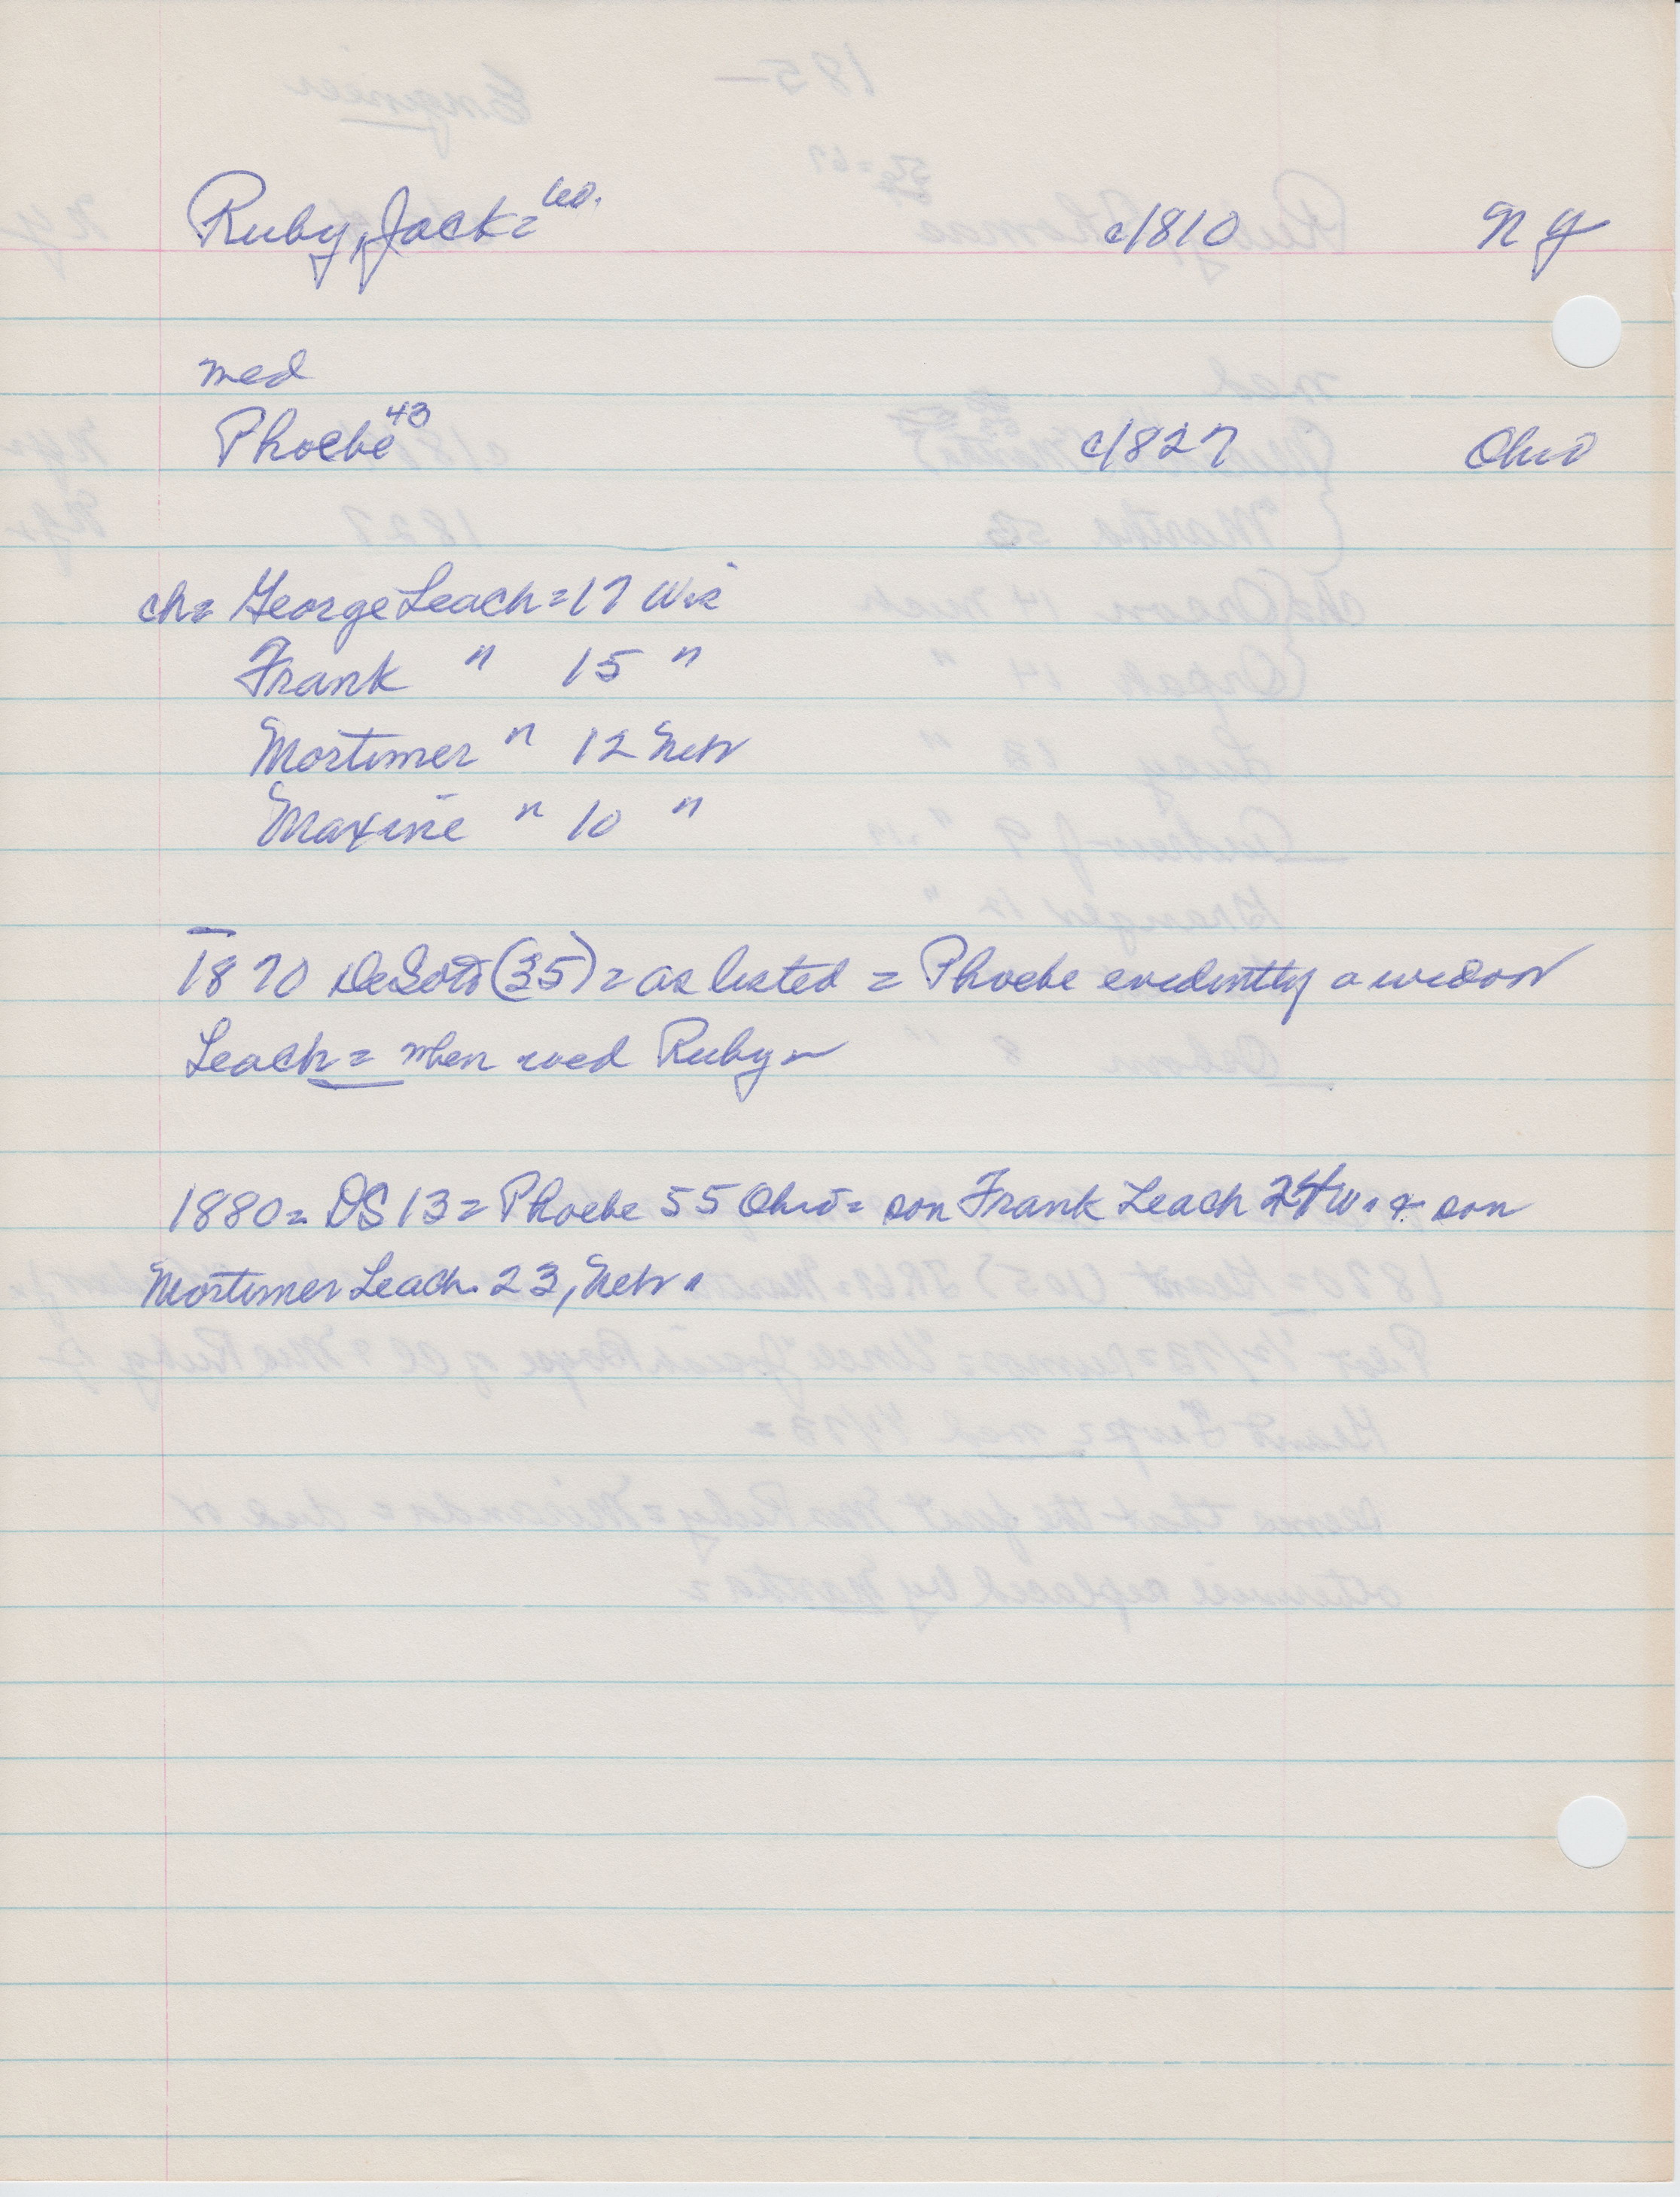 Ruby, Jack = 60. c/1810 N Y
med
Phoebe 43 c/1827 Ohio
ch = George Leach = 17 Wis
Frank " 15 "
Mortimer " 12 Neb
Maxine " 10 "
1870 DeSoto (35) = as listed = Phoebe evidently a widow
Leach = when wed Ruby
1880 = DS 13 = Phoebe 55 Ohio = son Frank Leach 24 W. & son
Mortimer Leach. 23, Neb.